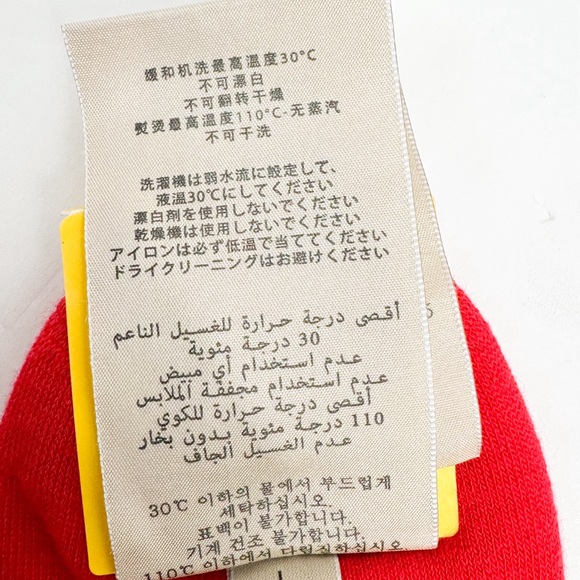 缓和机洗最高温度30°C
不可漂白
不可翻转干燥
熨烫最高温度110°C-无蒸汽
不可干洗
洗濯機は弱水流に設定して、
液温30℃にしてください
漂白剤を使用しないでください
乾燥機を使用しないでください
アイロンは必ず低温で当ててください
ドライクリーニングはお避けください
أقصى درجة حرارة للغسيل الناعم
30 درجة مئوية
عدم استخدام أي مبيض
عدم استخدام مجففة الملابس
أقصى درجة حرارة للكوي
110 درجة مئوية بدون بخار
عدم الغسيل الجاف
30℃ 이하의 물에서 부드럽게
세탁하십시오.
표백이 불가합니다.
기계 건조 불가합니다.
110℃ 이하에서 다림질하십시오